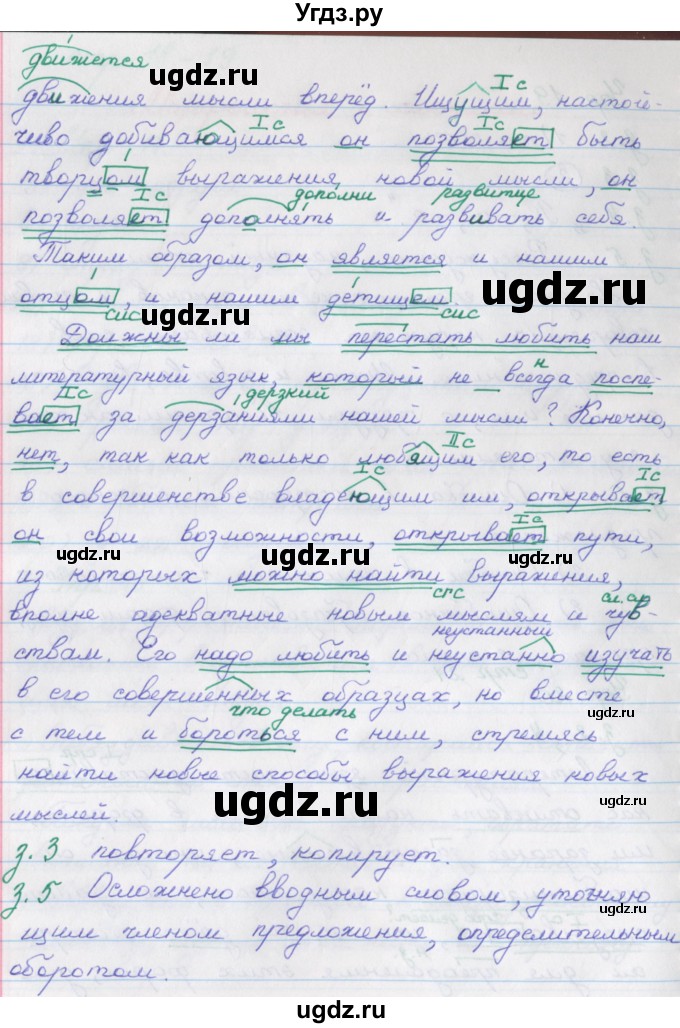 Угдз.ру
движется
ugdz.ru
Iс
движения мысли вперёд. Ищущим, настой-
Iс Iс
чиво добивающимся он позволяет быть
ugdz.ru
Iс дополни развитие
творцом выражения новой мысли, он
позволяет дополнять и развивать себя.
Таким образом, он является и нашим
ugdz.ru
отцом, и нашим детищем.
сис ugdz.ru сис
Должны ли мы перестать любить наш
н
литературный язык, который не всегда поспе-
Iс дерзкий
вает за дерзаниями нашей мысли? Конечно,
IIс
нет, так как только любящим его, то есть
Iс Iс
в совершенстве владеющим им, открывает
Iс
он свои возможности, открывает пути,
ugdz.ru ugdz.ru ugdz.ru
из которых можно найти выражения,
спс сл.ср
вполне адекватные новым мыслям и чув-
неустанный
ствам. Его надо любить и неустанно изучать
в его совершенных образцах, но вместе
что делать ugdz.ru
с тем и бороться с ним, стремясь
найти новые способы выражения новых
ugdz.ru
мыслей.
з.3 повторяет, копирует.
з.5 Осложнено вводным словом, уточняю
ugdz.ru
щим членом предложения, определительным
оборотом.
ugdz.ru